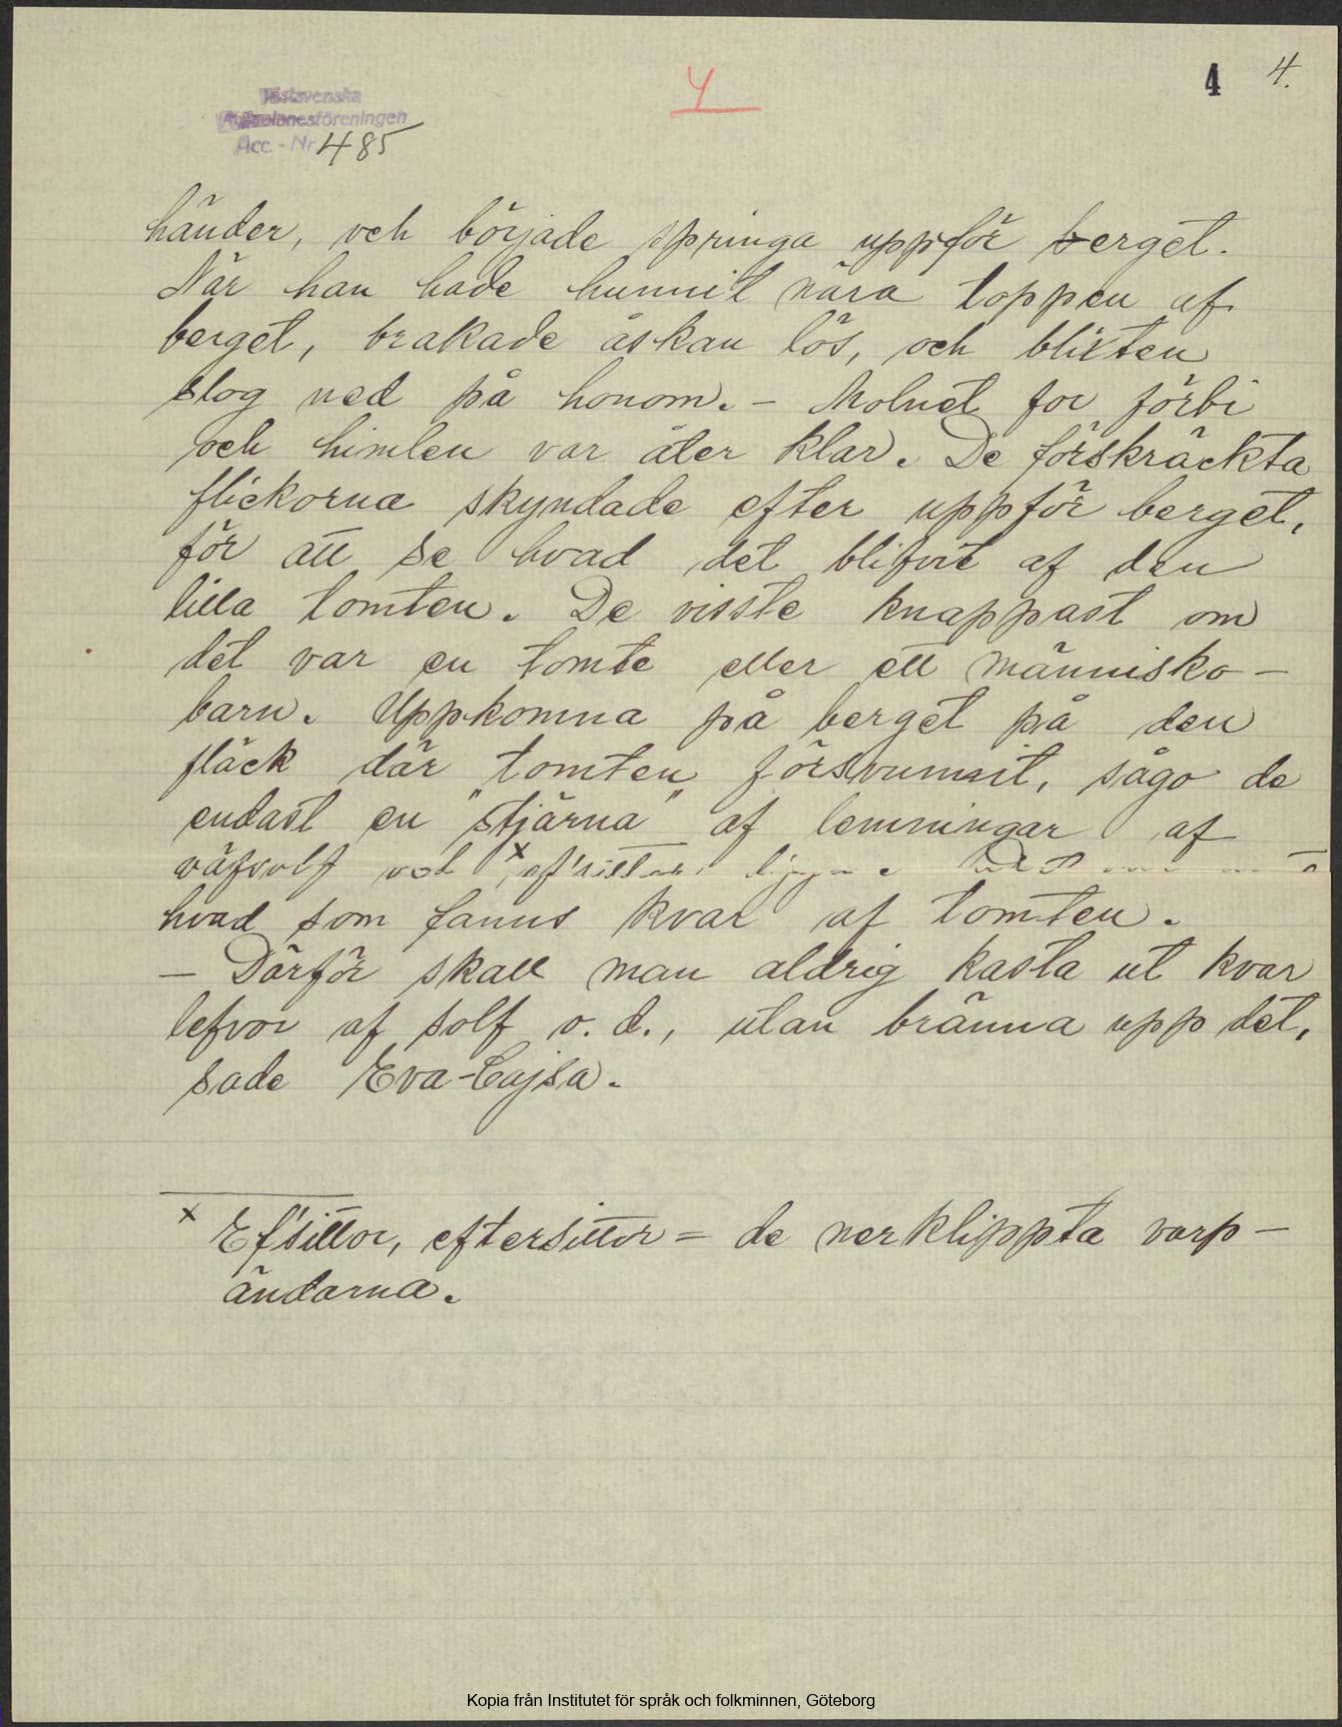 4
4 4.
Västsvenska
Folkminnesföreningen
Acc. - Nr 485
händer, och började springa uppför berget.
När han hade hunnit nära toppen af
berget, brakade åskan lös, och blixten
slog ned på honom. – Molnet for förbi
och himlen var åter klar. De förskräckta
flickorna skyndade efter uppför berget,
för att se hvad det blifvit af den
lilla tomten. De visste knappast om
det var en tomte eller ett människo-
barn. Uppkomna på berget på den
fläck där tomten försvunnit, sågo de
endast en "stjärna" af lemningar af
väfsolf och x ef'sittor ligga
hvad som fanns kvar af tomten.
– Därför skall man aldrig kasta ut kvar
lefvor af solf o. d., utan bränna upp det,
sade Eva-Cajsa.
x Ef'sittor, eftersittor = de nerklippta varp-
ändarna.
Kopia från Institutet för språk och folkminnen, Göteborg